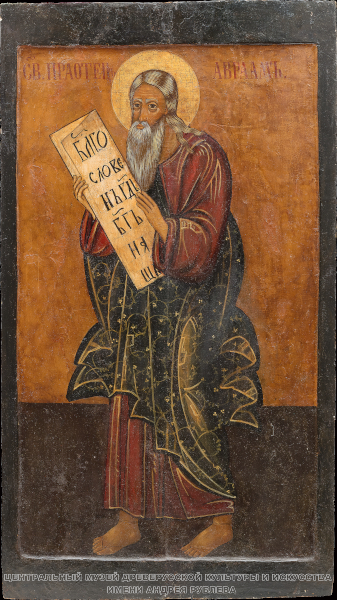 СВ. ПРАОТЕЦ АВРААМЪ.
БЛАГО
СЛОВЕ
НЪ ГДЬ
БГЪ
НА
Ш
ЦЕНТРАЛЬНЫЙ МУЗЕЙ ДРЕВНЕРУССКОЙ КУЛЬТУРЫ И ИСКУССТВА
ИМЕНИ АНДРЕЯ РУБЛЕВА